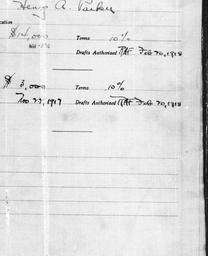 Henry A. Parker
$14,000 Terms 10%
Drafts Authorized Feb 20, 1918
$ 3,000 Terms 10%
Nov 23, 1917 Drafts Authorized Feb 20, 1918